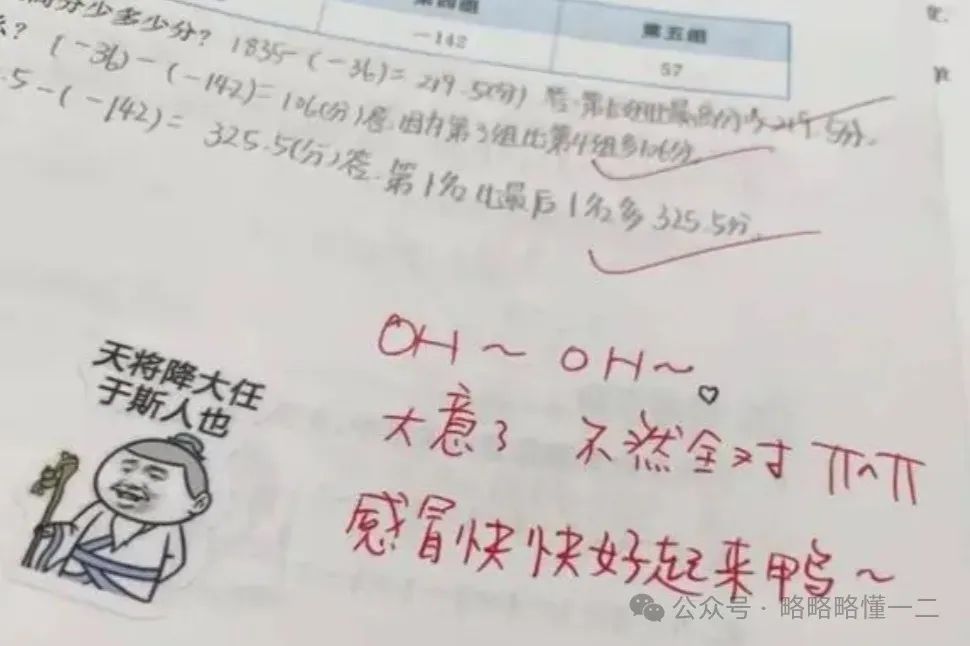 第四组 第五组
-142 57
高分少多少分? 1835-(-36)=219.5(分) 答.第 组比最 分 219.5分.
? (-36)-(-142)=106(分)答.因为第3组比第4组多106分.
.5-(-142)= 325.5(分)答.第1名比最后1名多325.5分.
OH~OH~
大意了 不然全对 πハπ
感冒快快好起来鸭~
天将降大任
于斯人也
公众号·略略略懂一二